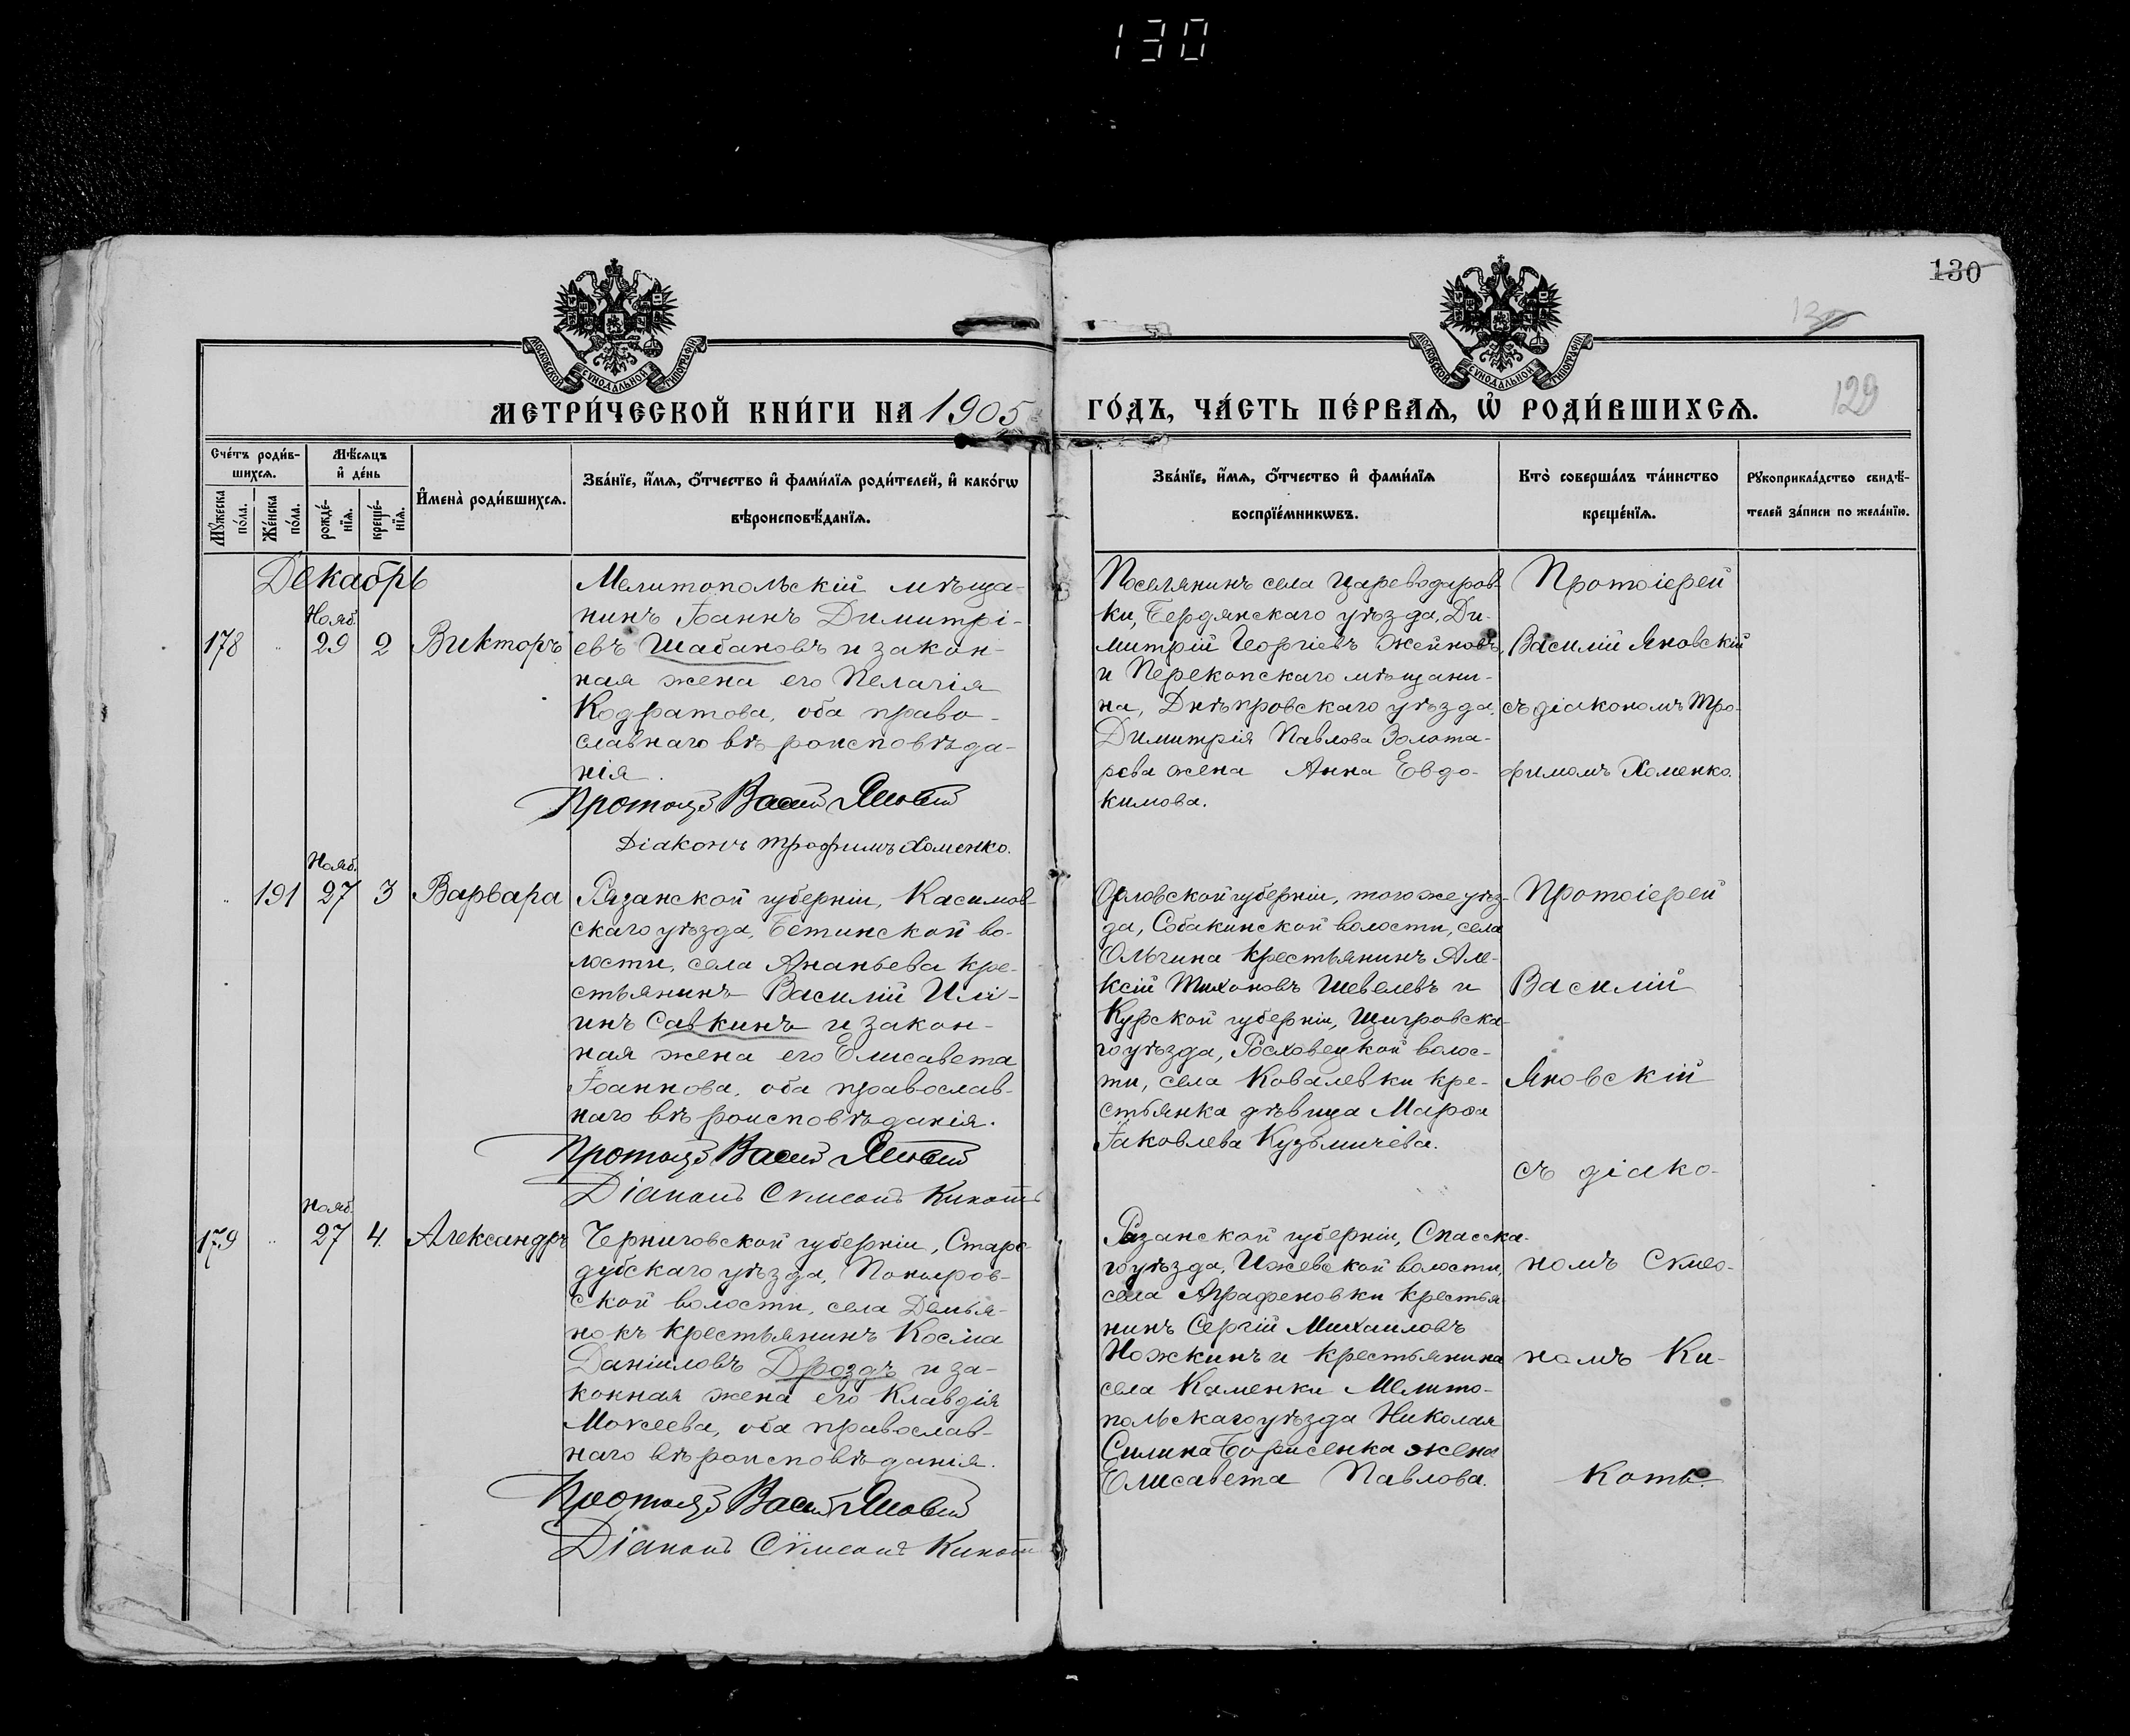 130
130
129
МЕТРИ́ЧЕСКОЙ КНИ́ГИ НА 1905
ГО́ДЪ, ЧА́СТЬ ПЕ́РВАѦ, Ѽ РОДИ́ВШИХСѦ.
Сче́тъ роди́в-
шихсѧ.
Мꙋ́жеска по́ла.
Же́нска по́ла.
Мѣ́сѧцъ
и҆ де́нь
рожде́-
нїѧ.
креще́-
нїѧ.
И҆мена̀ роди́вшихсѧ.
Зва́нїе, и҆́мѧ, ѻ҆́тчество и҆ фами́лїѧ роди́телей, и҆ како́гѡ
вѣроисповѣ́данїѧ.
Зва́нїе, и҆́мѧ, ѻ҆́тчество и҆ фами́лїѧ
воспрїе́мникѡвъ.
Кто̀ соверша́лъ та́инство
креще́нїѧ.
Рꙋкоприкла́дство свидѣ́-
телей за́писи по жела́нїю.
Декабрь
178 " Нояб. 29 2 Викторъ
Мелитопольскій мѣща-
нинъ Іоаннъ Димитрі-
евъ Шабановъ и закон-
ная жена его Пелагія
Кодратова, оба право-
славнаго вѣроисповѣда-
нія.
Протоіер Васил Яновскій
Діаконъ Трофимъ Хоменко.
Поселянинъ села Цареводаров-
ки, Бердянскаго уѣзда, Ди-
митрій Георгіевъ Жейновъ,
и Перекопскаго мѣщани-
на, Днѣпровскаго уѣзда,
Димитрія Павлова Золота-
рева жена Анна Евдо-
кимова.
Протоіерей
Василій Яновскій
съ діакономъ Тро-
фимомъ Хоменко.
" 191 Нояб. 27 3 Варвара
Рязанской губерніи, Касимов-
скаго уѣзда, Бетинской во-
лости, села Ананьева кре-
стьянинъ Василій Илі-
инъ Савкинъ и закон-
ная жена его Елисавета
Іоаннова, оба православ-
наго вѣроисповѣданія.
Протоіер Васил Яновскій
Діаконъ Сѵмеонъ Кикоть
Орловской губерніи, того же уѣз-
да, Собакинской волости, села
Ольгина крестьянинъ Але-
ксій Тихоновъ Шевелевъ и
Курской губерніи, Щигровска-
го уѣзда, Росховецкой волос-
ти, села Ковалевки кре-
стьянка дѣвица Марѳа
Іаковлева Кузьмичева.
Протоіерей
Василій
Яновскій
съ діако-
номъ Сѵмео-
номъ Ки-
коть.
179 " Нояб. 27 4. Александръ
Черниговской губерніи, Старо-
дубскаго уѣзда, Понуров-
ской волости, села Демья-
нокъ крестьянинъ Косма
Даніиловъ Дроздъ и за-
конная жена его Клавдія
Мокеева, оба православ-
наго вѣроисповѣданія.
Протоіер Васил Яновскій
Діаконъ Сѵмеонъ Кикоть
Рязанской губерніи, Спасска-
го уѣзда, Ижевской волости,
села Аграфеновки крестья-
нинъ Сергій Михаиловъ
Ножкинъ и крестьянина
села Каменки Мелито-
польскаго уѣзда Николая
Силина Борисенка жена
Елисавета Павлова.